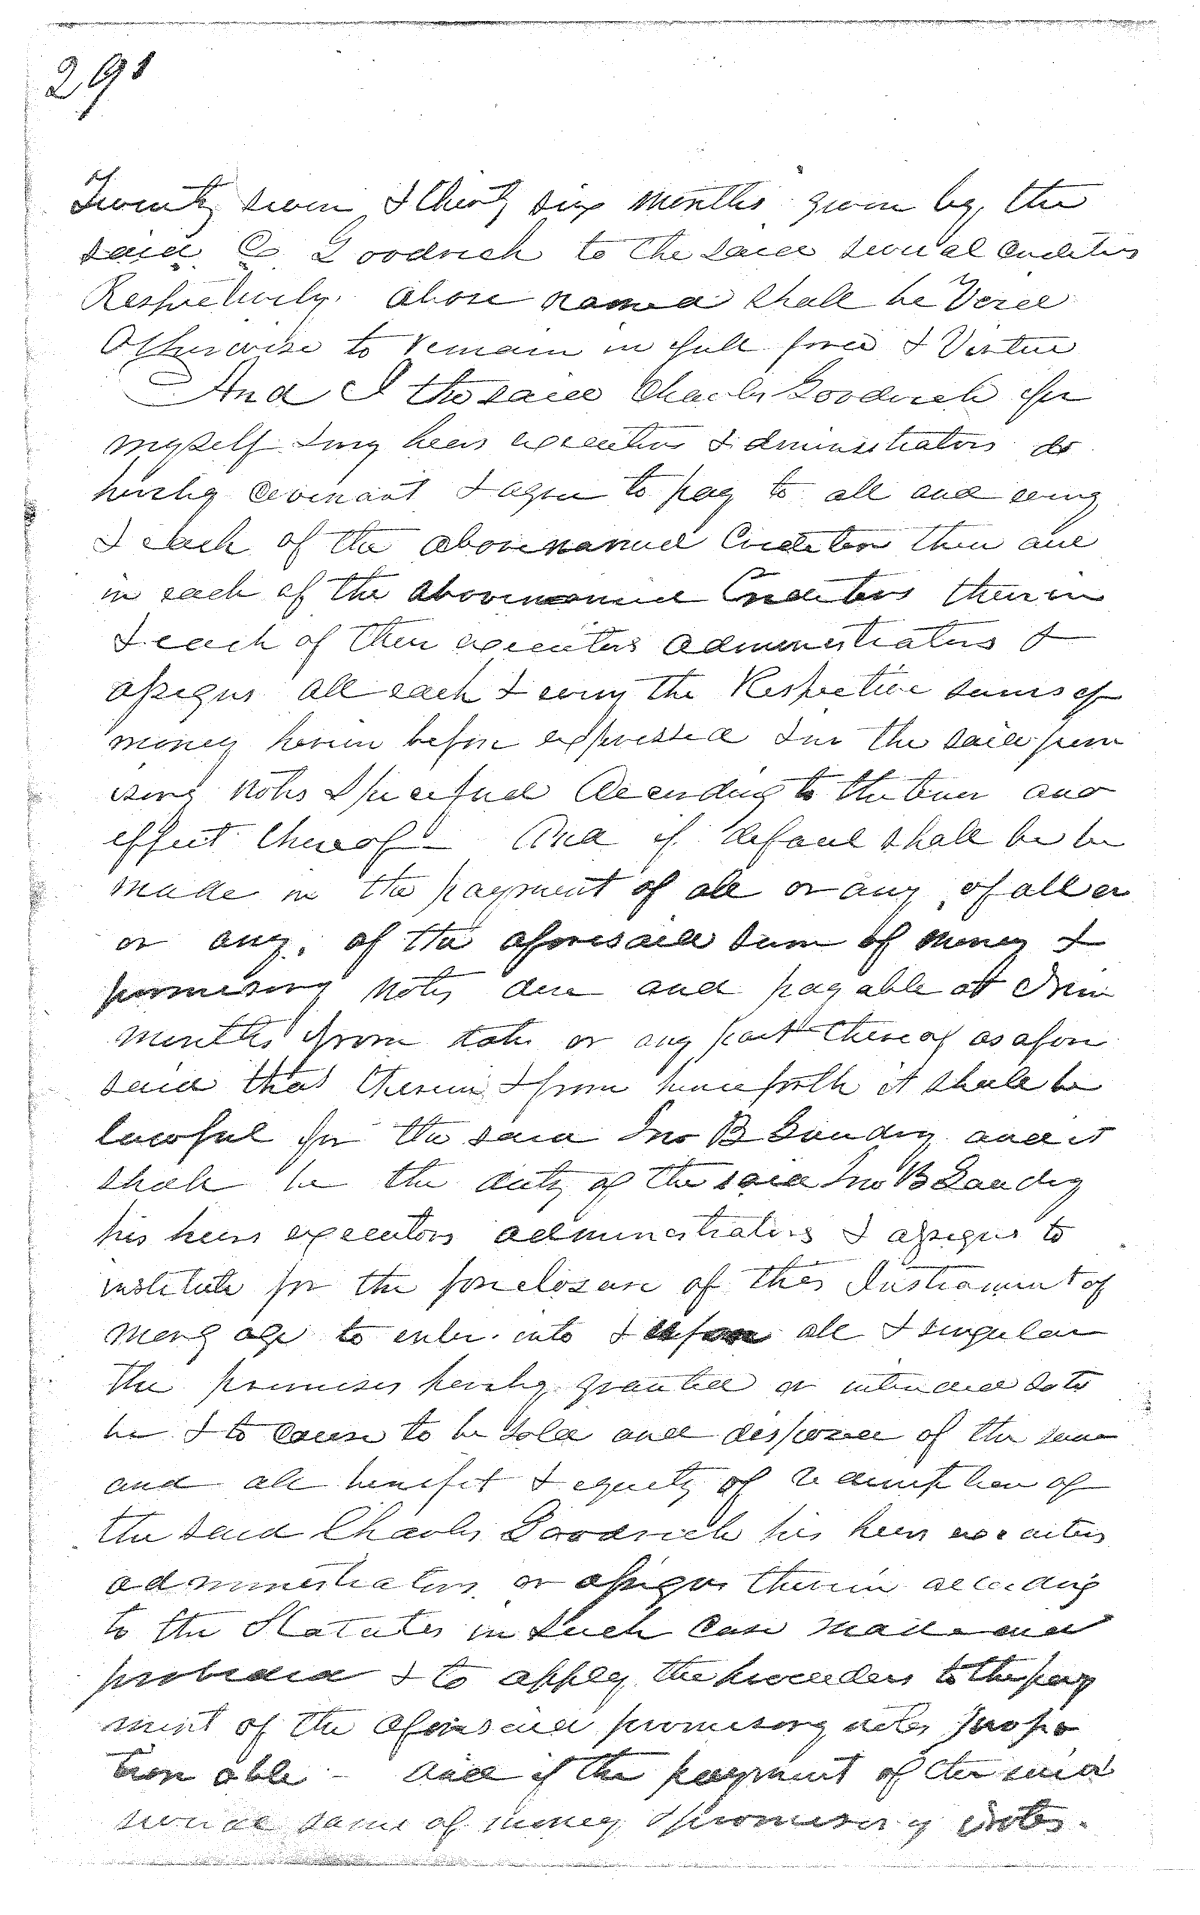 291
Twenty seven & thirty six months given by the
said C. Goodrich to the said several creditors
Respectively. above named shall be Void
Otherwise to remain in full force & Virtue
And I the said Charles Goodrich for
myself & my heirs executors & administrators do
hereby covenant & agree to pay to all and every
& each of the abovenamed Creditors then and
in each of the abovenamed Creditors therein
& each of their executors administrators &
assigns all each & every the Respective sums of
money herein before expressed & in the said prom
isory notes Specified According to the tener and
effect thereof - And if default shall be be
made in the payment of all or any of all or
or any. of the aforesaid sum of money &
promisory notes due and payable at Nine
months from date or any part thereof as afore
said that therein & from henceforth it shall be
lawful for the said Jno B Gaudry and it
shall be the duty of the said Jno B Gaudry
his heirs executors administrators & assigns to
institute for the foreclosure of this Instrument of
Mortgage to enter into & upon all & singular
the premises hereby granted or intended so to
be & to cause to be sold and disposed of the same
and all benefit & equity of redemption of
the said Charles Goodrich his heirs executors
administrators or assigns therein according
to the Statutes in such case made and
provided & to apply the proceeders to the pay
ment of the aforesaid promisory notes propo
tion able - And if the payment of the said
several sums of money & promisory Notes.